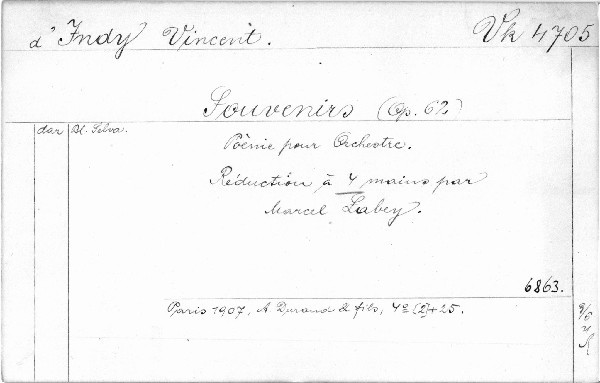 d' Indy Vincent. Vk 4705
Souvenirs (Op. 62)
dar Bl. Selva.
Poème pour Orchestre.
Réduction à 4 mains par
Marcel Labey.
6863.
Paris 1907, A Durand & fils, 4º [2]+25.